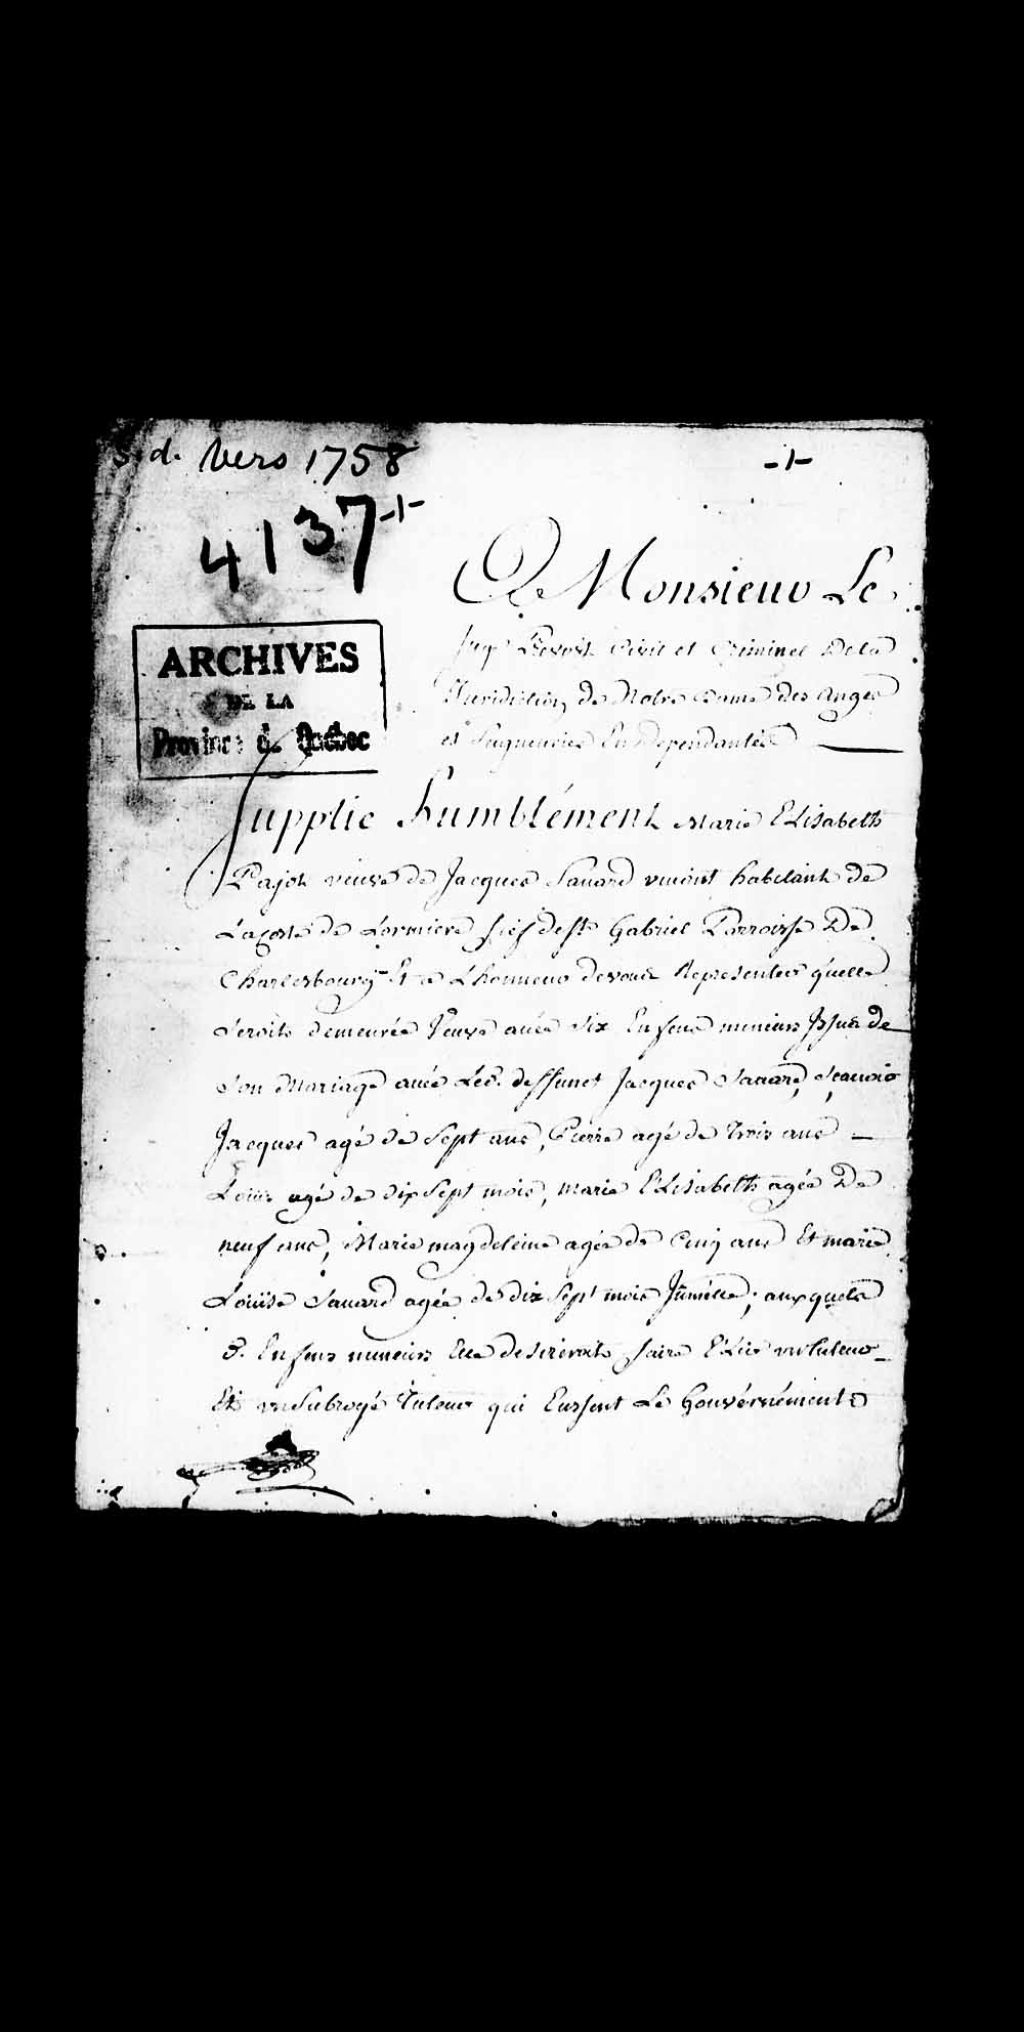 S.d. Vers 1758
4137
ARCHIVES
DE LA
Province de Québec
A Monsieur Le
Juge Prevost Civil et Criminel De La
Juridiction de Notre Dame des Anges
et Seigneuries En Dependantes
Supplie humblément Marie Elisabeth
Pajot veuve de Jacques Sauard vivant habitant de
La Coste de Lormiere fief de St Gabriel Parroisse De
Charlesbourg Et a L'honneur de vous Representer quelle
Seroits demeurée Veuve avéc Six Enfens mineurs Issus de
Son Mariage avéc Led. deffunct Jacques Sauard, Scauoir
Jacques agé de Sept ans, Pierre agé de Trois ans
Louis agé de dix Sept mois, Marie Elisabeth agée De
neuf ans, Marie magdeleine agée de Cinq ans Et marie
Louise Sauard agée de dix Sept mois Juméue; auxquels
6. Enfens mineurs Elle desireroits faire Elire un tuteur
Et un Subrogé Tuteur qui Eussent Le Gouvérnément